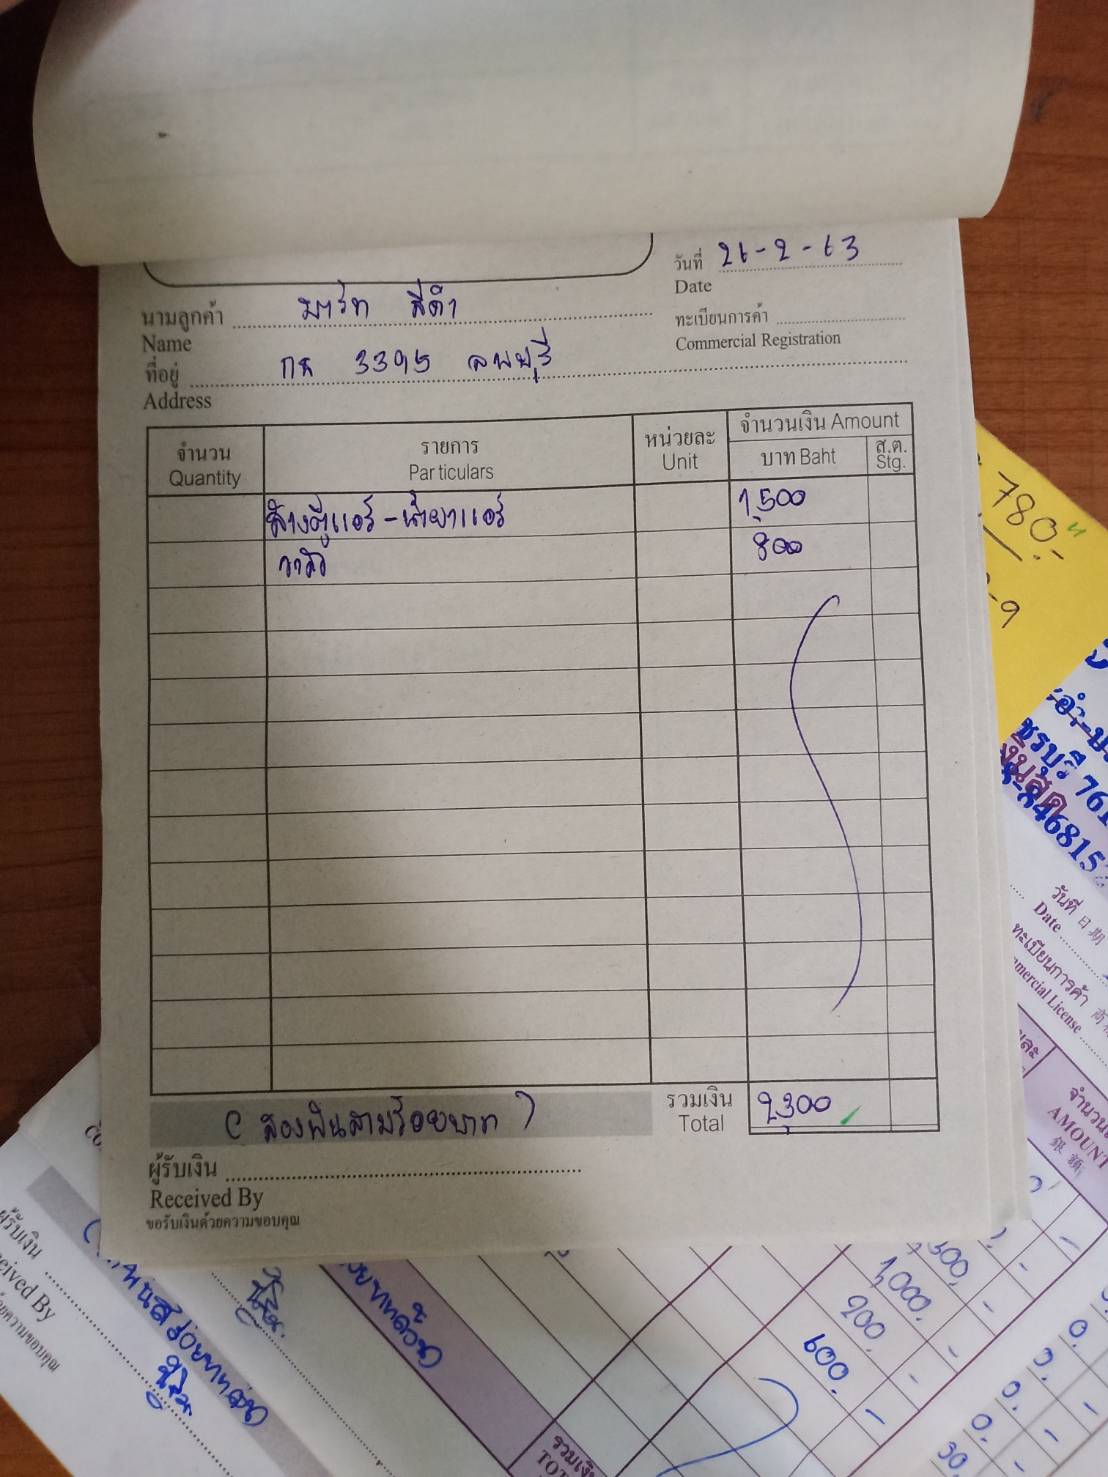 วันที่ 26-2-63
Date
นามลูกค้า มาร์ท สีดำ
Name
ทะเบียนการค้า
Commercial Registration
ที่อยู่ กธ 3395 ลพบุรี
Address
จำนวน รายการ หน่วยละ จำนวนเงิน Amount
Quantity Particulars Unit บาท Baht ส.ต. Stg.
ล้างตู้แอร์-น้ำยาแอร์ 1,500
วาล์ว 800
(สองพันสามร้อยบาท) รวมเงิน 2,300
Total
ผู้รับเงิน
Received By
ขอรับเงินด้วยความขอบคุณ
780.-
-9
ชรบุรี 761
เงินสด
8-8468152
วันที่ 日期
Date
ทะเบียนการค้า
mercial License
จำนวน
AMOUNT
銀額
1,000.-
200.-
600.-
รวมเงิน
ผู้รับเงิน
eived By
ด้วยความขอบคุณ